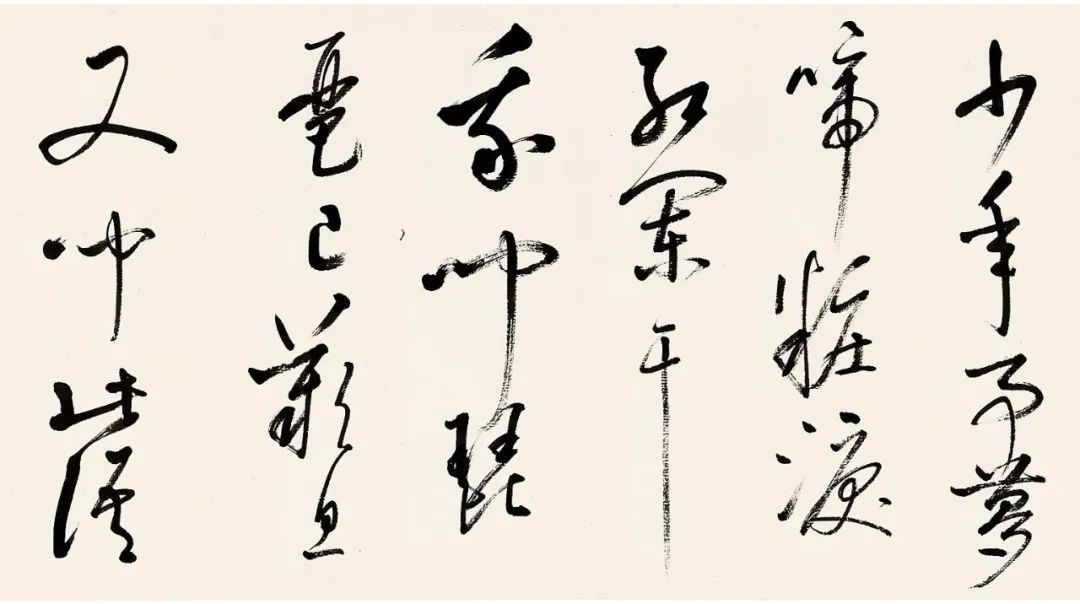 少年事夢
啼粧淚
紅闌干
我聞琵
琶已歎息
又聞此語